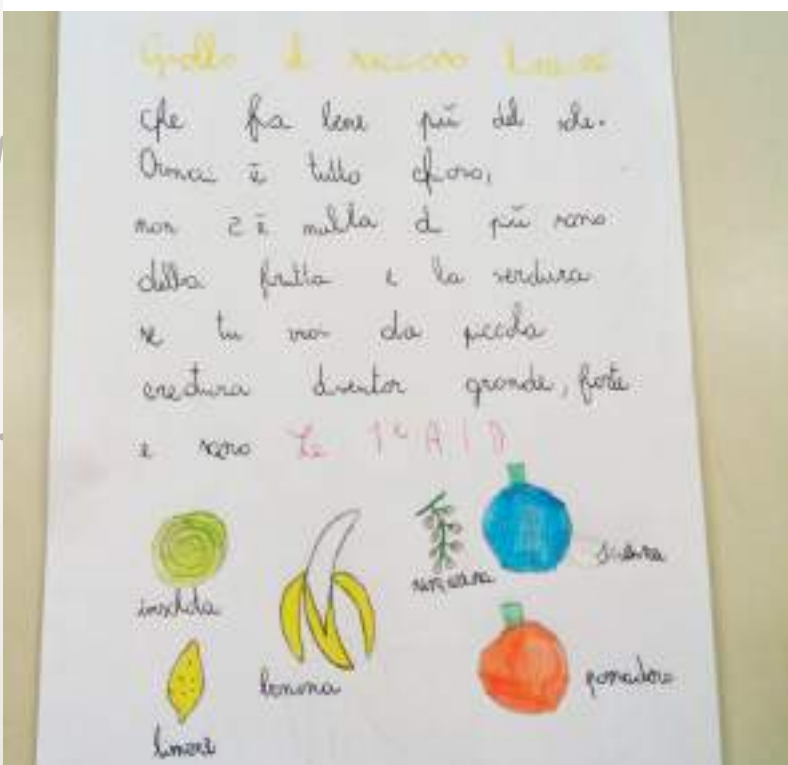 che fa bene più del sole.
Ormai è tutto chiaro,
non c'è nulla di più sano
della frutta e la verdura
se tu vuoi da piccola
creatura diventar grande, forte
e sano Le 1ª A / D
insalata
banana
limone
pomodoro